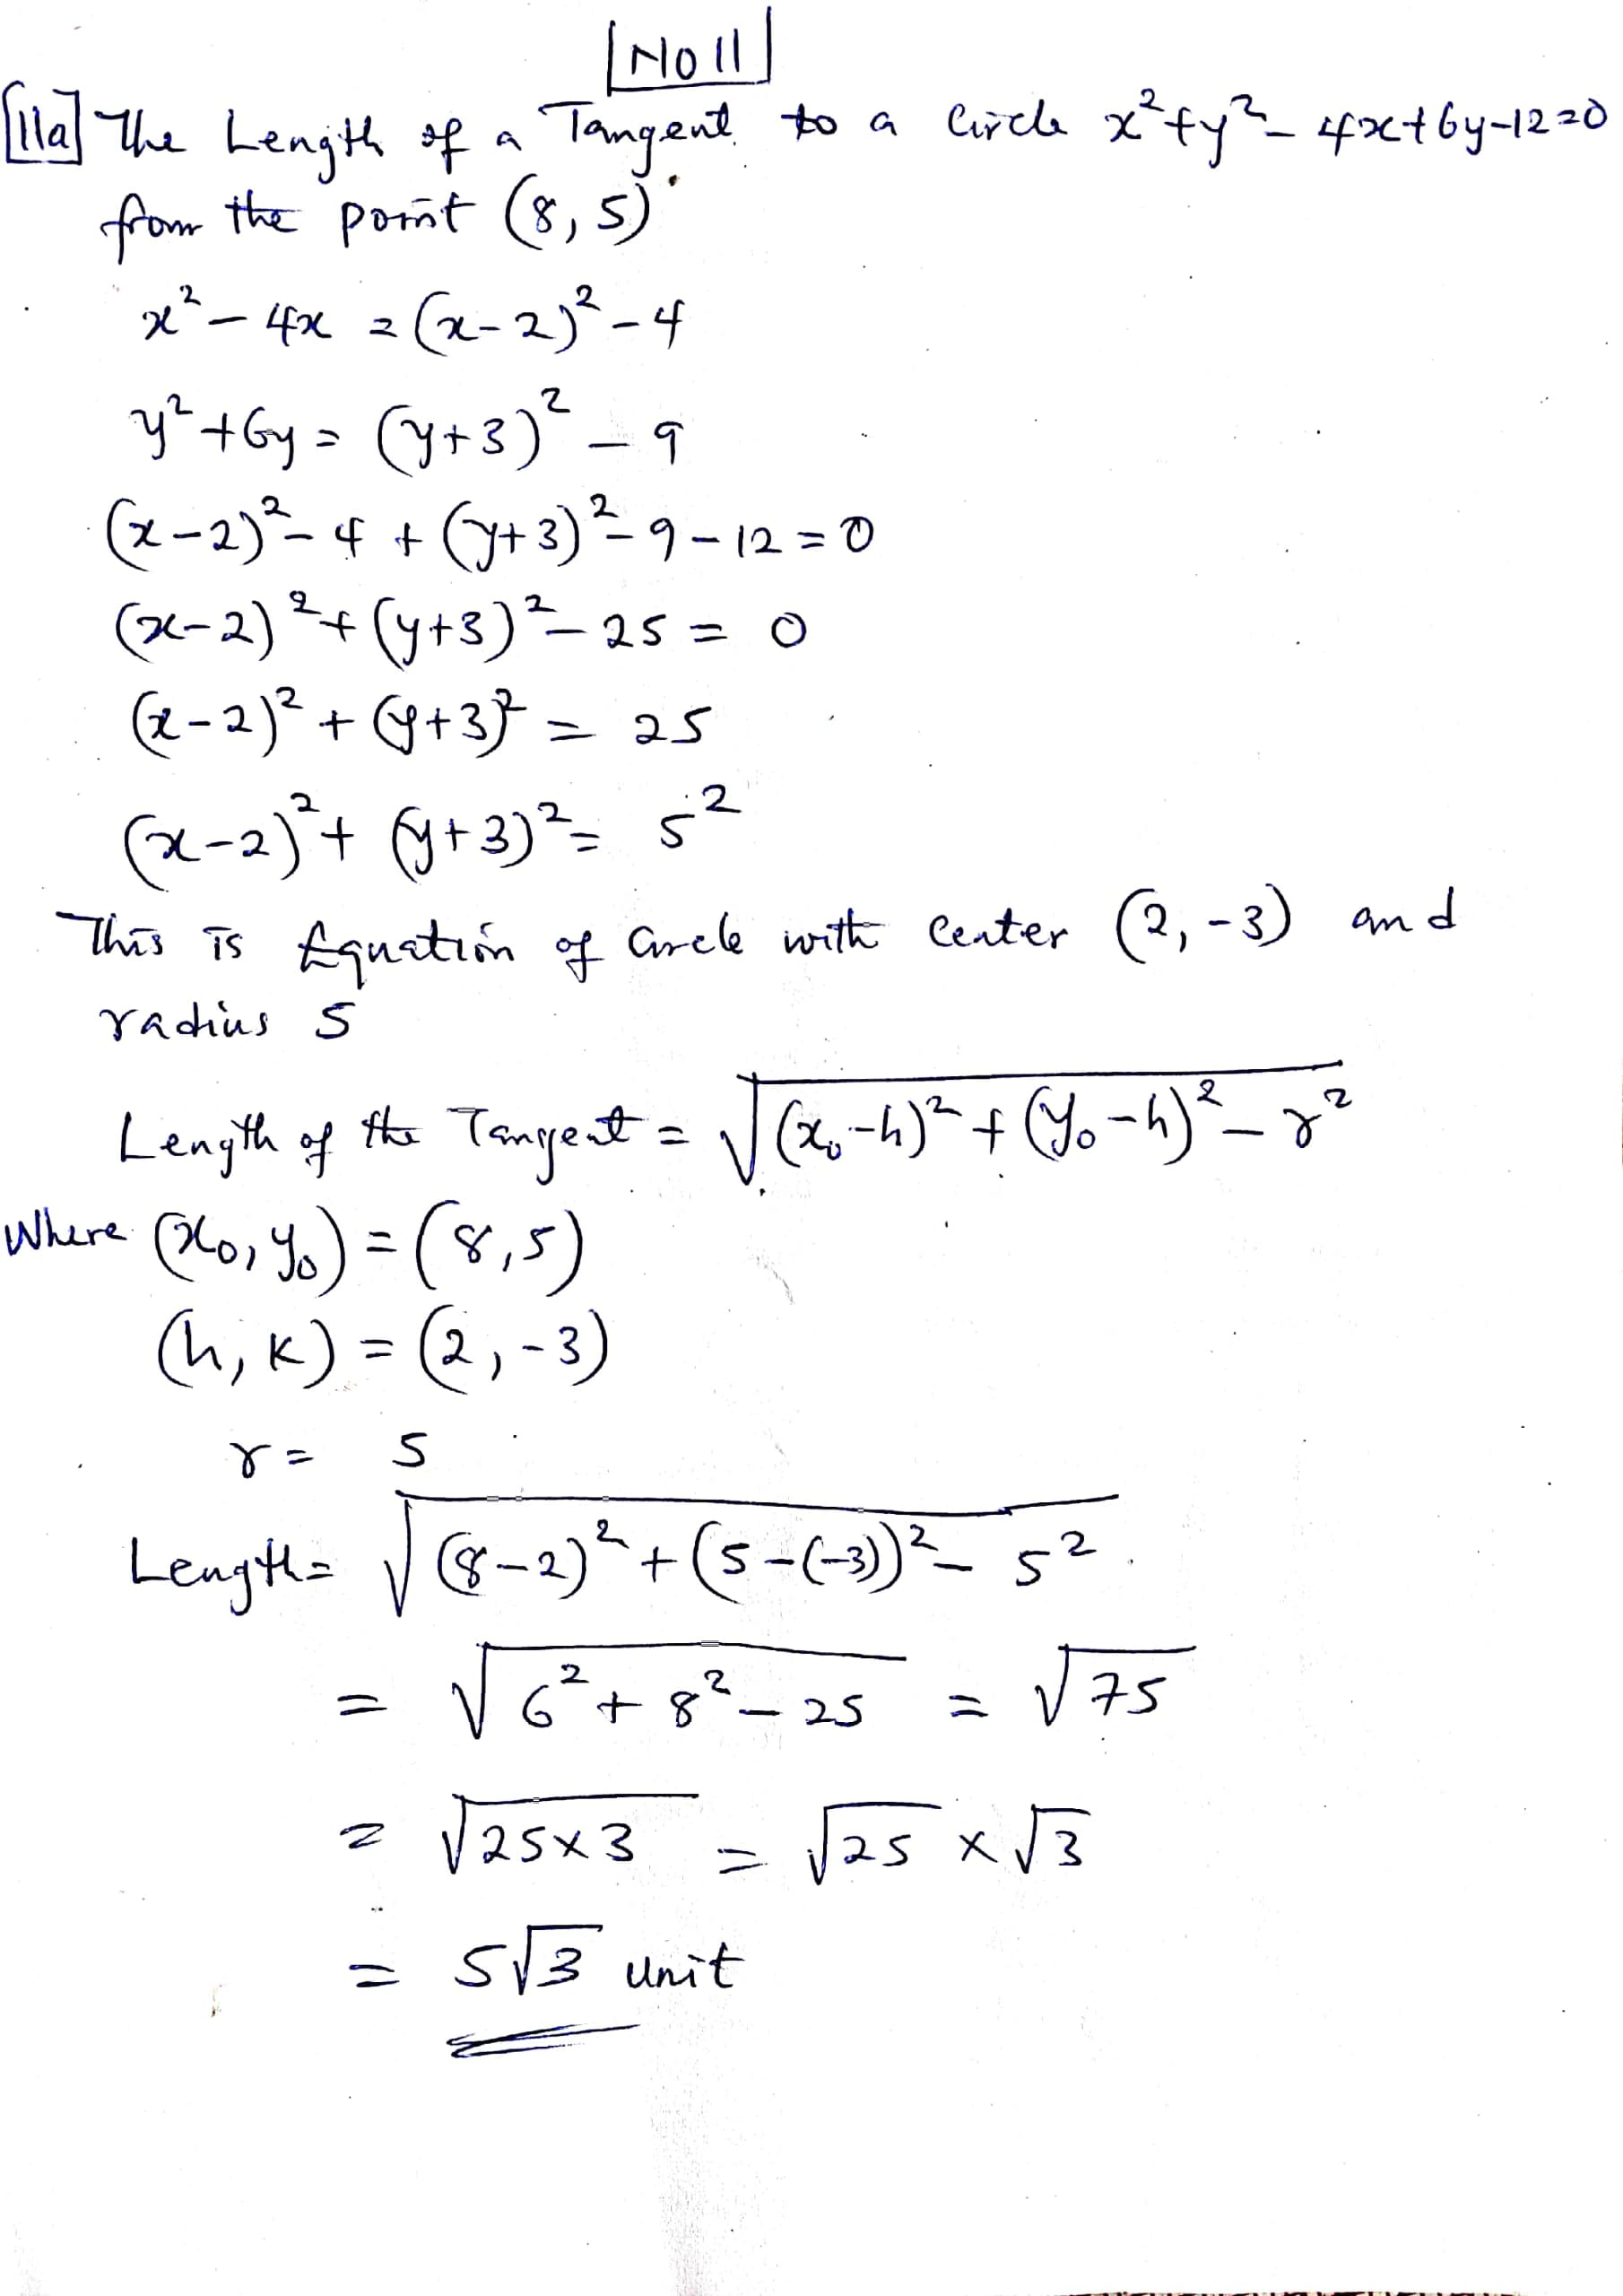 No 11
11a The Length of a Tangent to a Circle x²+y²-4x+6y-12=0
from the point (8,5)
x² - 4x = (x-2)² - 4
y² + 6y = (y+3)² - 9
(x-2)² - 4 + (y+3)² - 9 - 12 = 0
(x-2)² + (y+3)² - 25 = 0
(x-2)² + (y+3)² = 25
(x-2)² + (y+3)² = 5²
This is Equation of Circle with Center (2,-3) and
radius 5
Length of the Tangent = √((x₀-h)² + (y₀-h)² - r²)
Where (x₀, y₀) = (8,5)
(h, K) = (2, -3)
r = 5
Length = √((8-2)² + (5-(-3))² - 5²)
= √(6² + 8² - 25) = √75
= √(25×3) = √25 × √3
= 5√3 unit